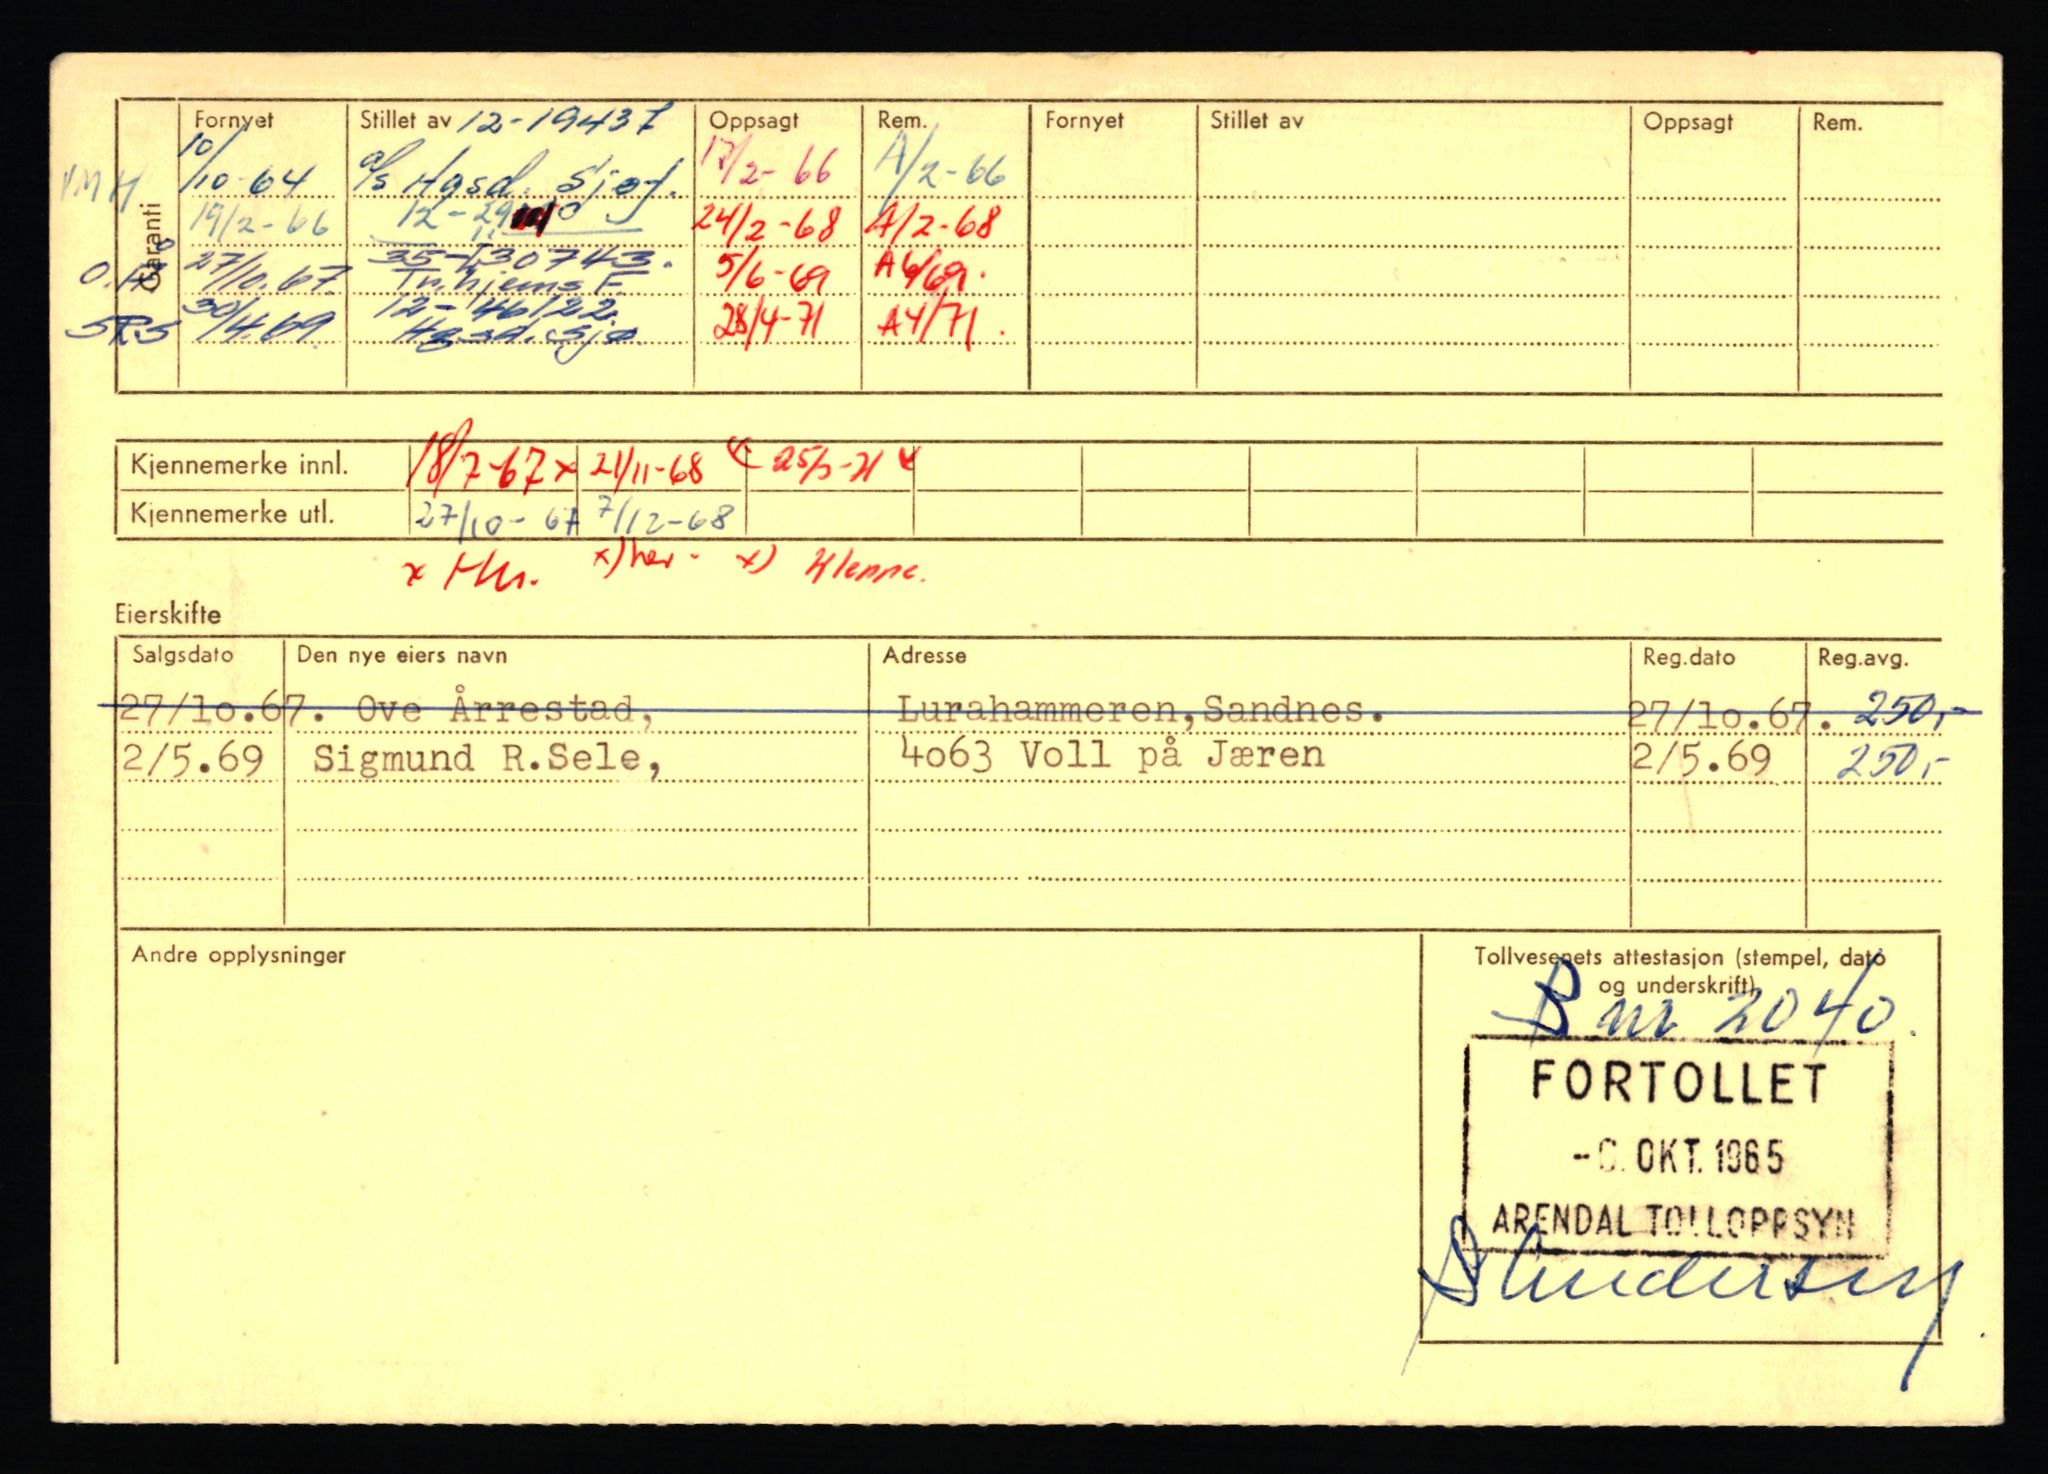 Garanti
Fornyet Stillet av 12-19437 Oppsagt Rem. Fornyet Stillet av Oppsagt Rem.
10/10-64 a/s Hgsd. Sjøf. 17/2-66 A/2-66
19/2-66 12-29 24/2-68 A/2-68
27/10.67 35-130743. 5/6-69 A6/69.
Tr.hjems F.
SRS 30/4.69 12-146122 28/4-71 A4/71.
Hgsd. Sjø
Kjennemerke innl. 18/7-67 x 21/11-68 25/3-71
Kjennemerke utl. 27/10-67 7/12-68
x x) her - x) Klenne.
Eierskifte
Salgsdato Den nye eiers navn Adresse Reg.dato Reg.avg.
27/1o.67. Ove Årrestad, Lurahammeren,Sandnes. 27/1o.67. 250,-
2/5.69 Sigmund R.Sele, 4o63 Voll på Jæren 2/5.69 250,-
Andre opplysninger
Tollvesenets attestasjon (stempel, dato
og underskrift)
B nr 2040.
FORTOLLET
OKT. 1965
ARENDAL TOLLOPPSYN
Andersen